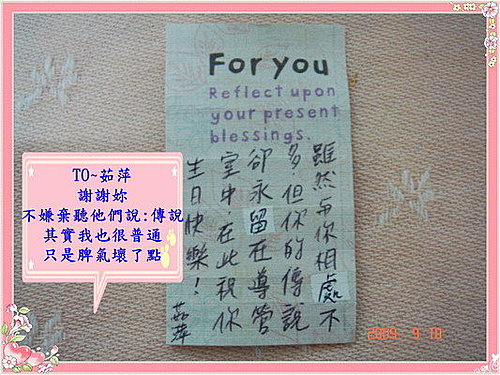 For you
Reflect upon
your present
blessings.
雖然与你相處不
多,但你的傳說
卻永留在導管
室中,在此祝你
生日快樂!
茹萍
TO~茹萍
謝謝妳
不嫌棄聽他們說:傳說
其實我也很普通
只是脾氣壞了點
2009 9